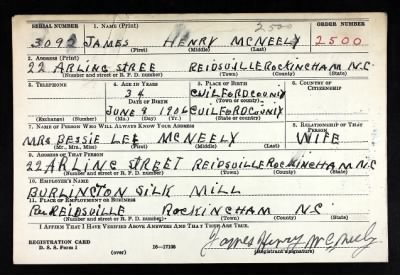 2500
SERIAL NUMBER 1. NAME (Print) ORDER NUMBER
3092 JAMES HENRY MCNEELY 2500
(First) (Middle) (Last)
2. ADDRESS (Print)
22 ARLING STREE REIDSVILLE ROCKINGHAM N.C
(Number and street or R. F. D. number) (Town) (County) (State)
3. TELEPHONE 4. AGE IN YEARS 5. PLACE OF BIRTH 6. COUNTRY OF CITIZENSHIP
34 GUILFORD COUNTY
DATE OF BIRTH (Town or county)
JUNE 9 1906 GUILFORD COUNTY
(Exchange) (Number) (Mo.) (Day) (Yr.) (State or country)
7. NAME OF PERSON WHO WILL ALWAYS KNOW YOUR ADDRESS 8. RELATIONSHIP OF THAT PERSON
MRS BESSIE LEE MCNEELY WIFE
(Mr., Mrs., Miss) (First) (Middle) (Last)
9. ADDRESS OF THAT PERSON
22 ARLING STREET REIDSVILLE ROCKINGHAM N.C
(Number and street or R. F. D. number) (Town) (County) (State)
10. EMPLOYER'S NAME
BURLINGTON SILK MILL
11. PLACE OF EMPLOYMENT OR BUSINESS
REIDSVILLE ROCKINGHAM N.C
(Number and street or R. F. D. number) (Town) (County) (State)
I AFFIRM THAT I HAVE VERIFIED ABOVE ANSWERS AND THAT THEY ARE TRUE.
REGISTRATION CARD
D. S. S. Form 1 (over) 16—17105
James Henry McNeely
(Registrant's signature)